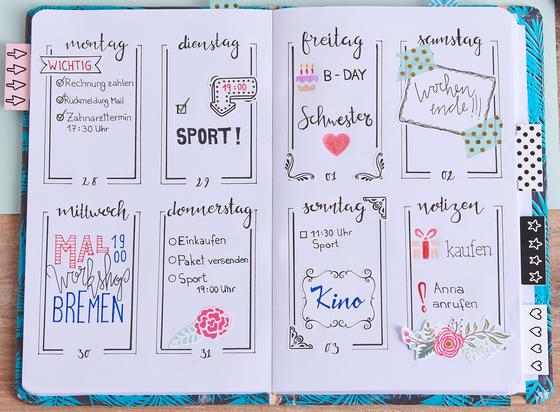 montag
WICHTIG
Rechnung zahlen
Rückmeldung Mail
Zahnarzttermin
17:30 Uhr
28
dienstag
19:00
SPORT!
29
mittwoch
MAL 19
00
Workshop
BREMEN
30
donnerstag
Einkaufen
Paket versenden
Sport
19:00 Uhr
31
freitag
B-DAY
Schwester
01
samstag
Wochen
ende!!!
02
sonntag
11:30 Uhr
Sport
Kino
03
notizen
kaufen
! Anna
anrufen